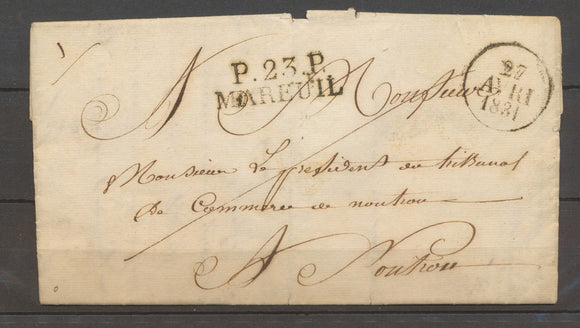 P.23.P.
MAREUIL
27
AVRI
1831
A Monsieur
Monsieur Le président du tribunal
de Commerce de nontron
A Nontron